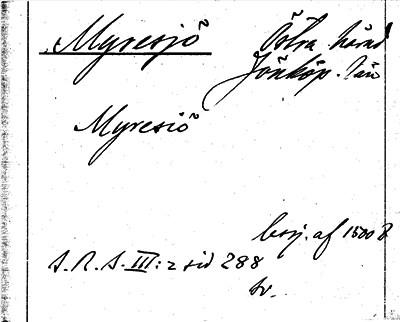 Myresjö Östra härad
Jönköp. län
Myresiö
börj. af 1500 t.
S. R. S. III: 2 sid 288
sv.